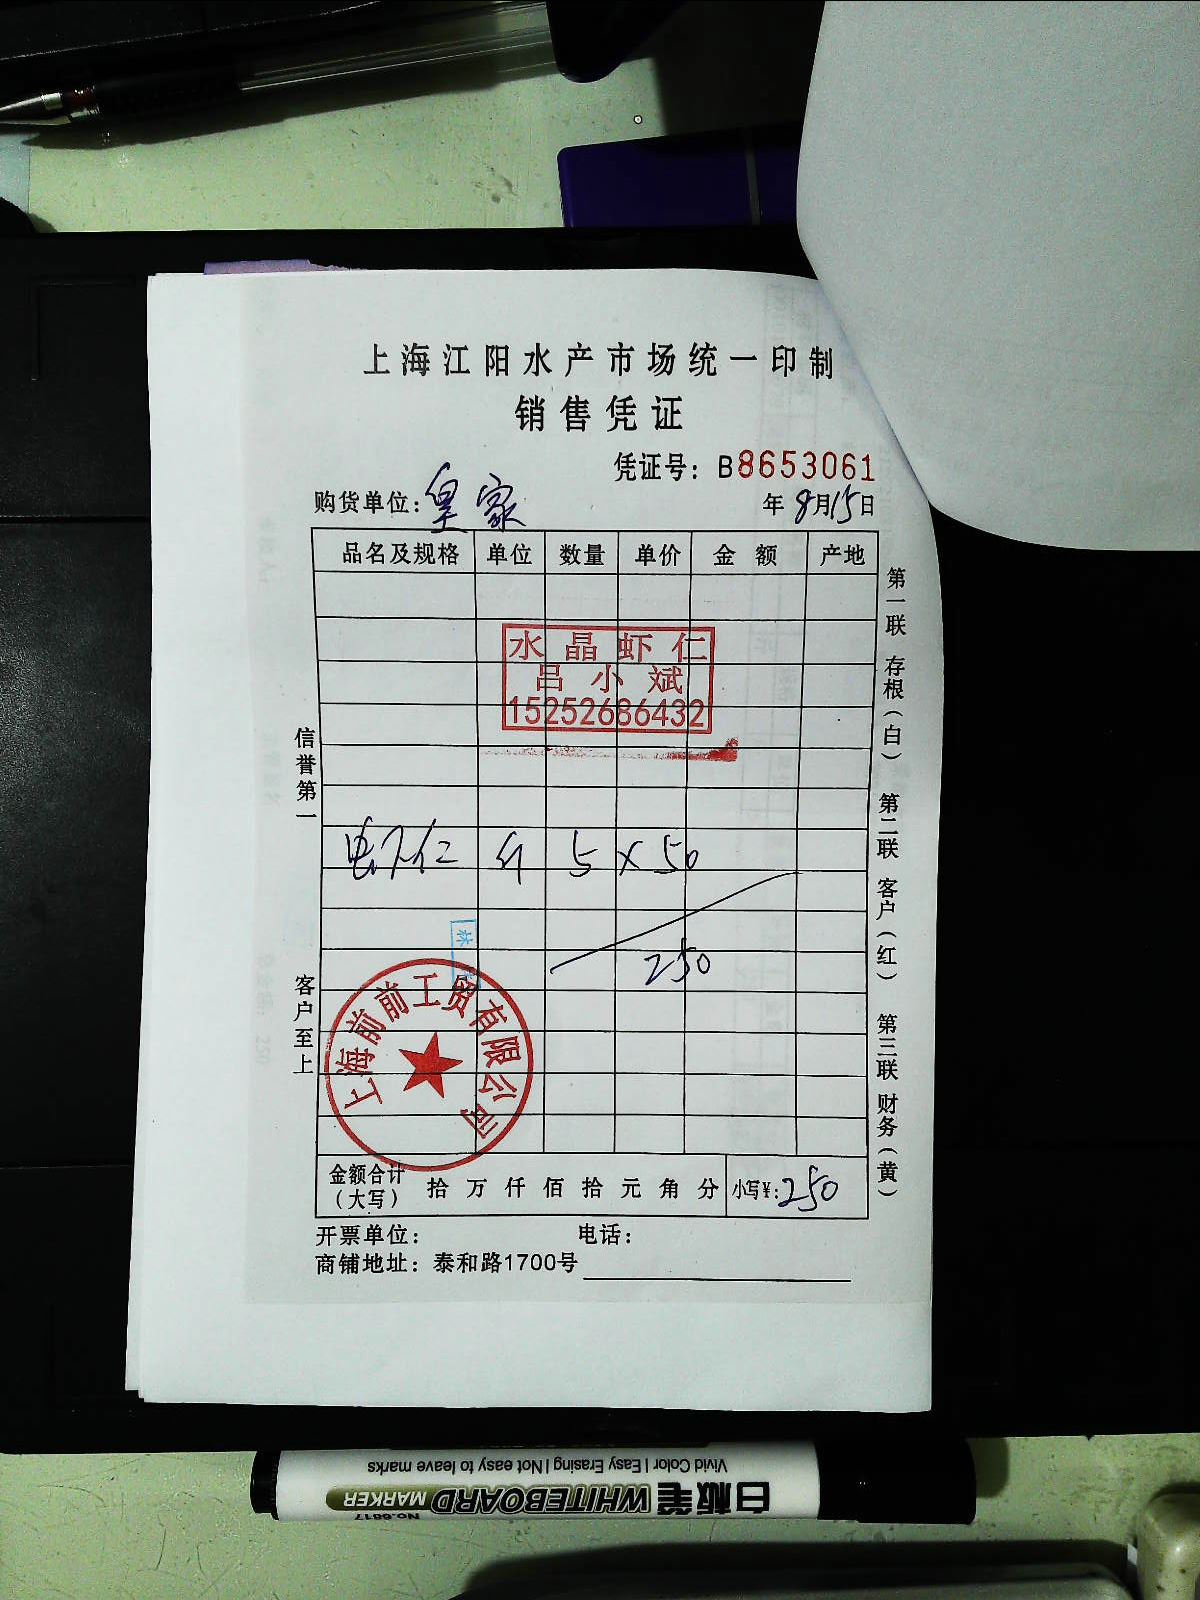 上海江阳水产市场统一印制
销售凭证
凭证号：B8653061
购货单位：皇家 年8月15日
品名及规格 单位 数量 单价 金额 产地
水晶虾仁
吕小斌
15252686432
斤 5×50
250
林
上海前前工贸有限公司
金额合计（大写） 拾万仟佰拾元角分 小写¥：250
开票单位： 电话：
商铺地址：泰和路1700号
信誉第一 客户至上
第一联 存根（白） 第二联 客户（红） 第三联 财务（黄）
Vivid Color | Easy Erasing | Not easy to leave marks
白板笔 WHITEBOARD MARKER
No.6817